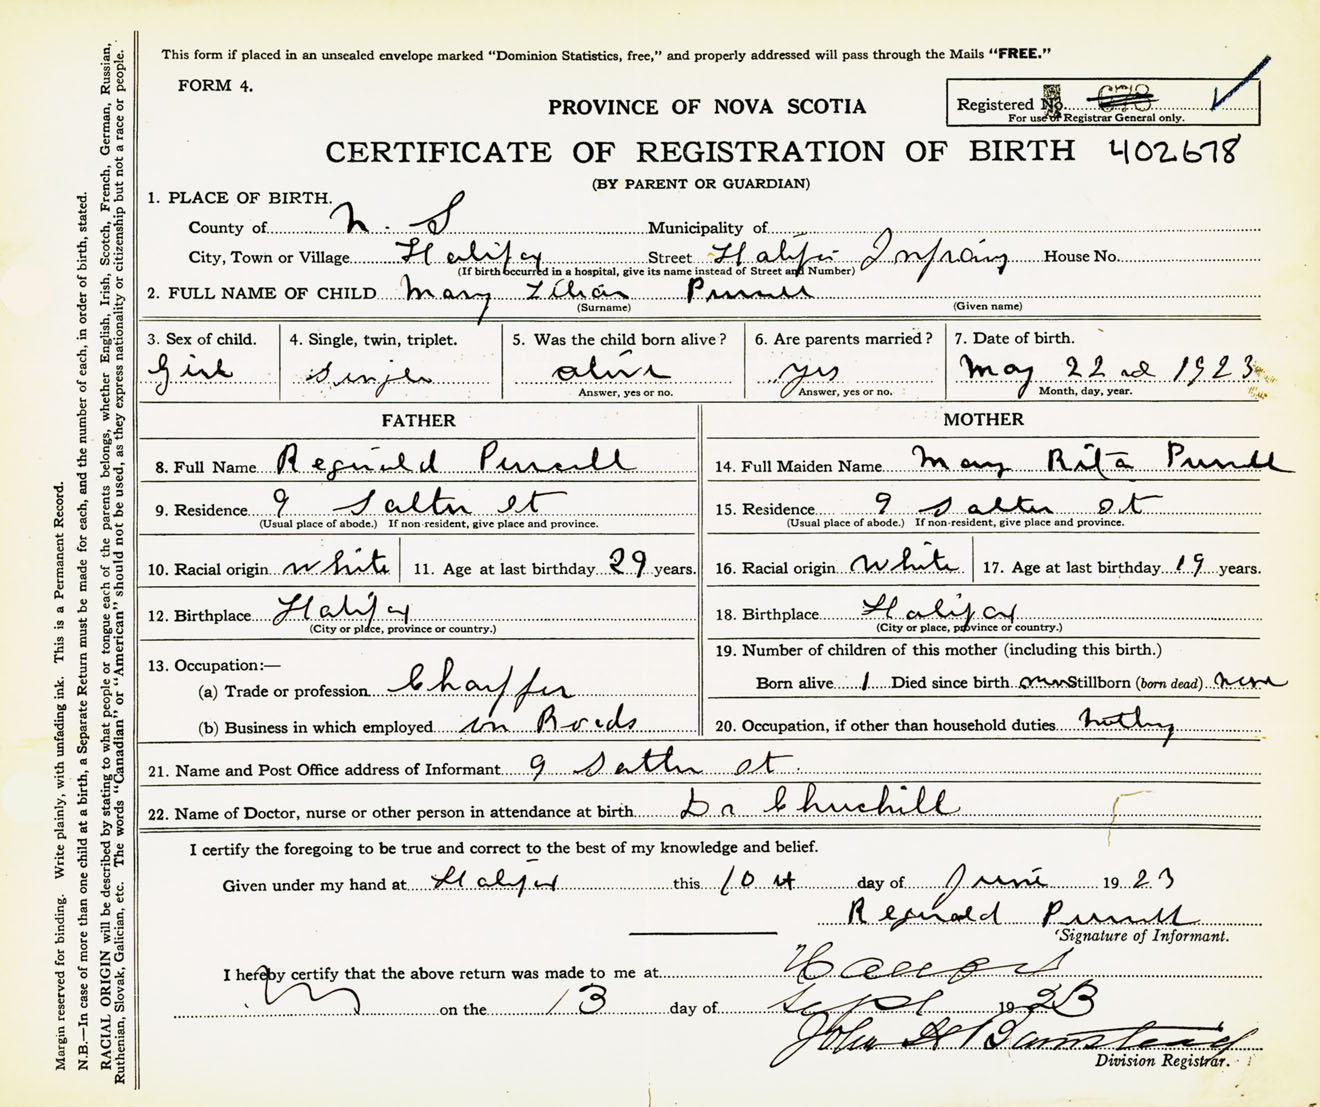 This form if placed in an unsealed envelope marked "Dominion Statistics, free," and properly addressed will pass through the Mails "FREE."
FORM 4.
Registered No. 678
For use of Registrar General only.
PROVINCE OF NOVA SCOTIA
CERTIFICATE OF REGISTRATION OF BIRTH 402678
(BY PARENT OR GUARDIAN)
1. PLACE OF BIRTH.
County of N. S Municipality of
City, Town or Village Halifax Street Halifax House No.
(If birth occurred in a hospital, give its name instead of Street and Number)
2. FULL NAME OF CHILD Mary Lilian Purcell
(Surname) (Given name)
3. Sex of child. 4. Single, twin, triplet. 5. Was the child born alive? 6. Are parents married? 7. Date of birth.
Girl Single alive yes May 22 nd 1923
Answer, yes or no. Answer, yes or no. Month, day, year.
FATHER
8. Full Name Reginald Purcell
9. Residence 9 Salter St
(Usual place of abode.) If non-resident, give place and province.
10. Racial origin white 11. Age at last birthday 29 years.
12. Birthplace Halifax
(City or place, province or country.)
13. Occupation:—
(a) Trade or profession Chaffer
(b) Business in which employed on Roads
MOTHER
14. Full Maiden Name Mary Rita Purcell
15. Residence 9 Salter St
(Usual place of abode.) If non-resident, give place and province.
16. Racial origin White 17. Age at last birthday 19 years.
18. Birthplace Halifax
(City or place, province or country.)
19. Number of children of this mother (including this birth.)
Born alive 1 Died since birth Stillborn (born dead) none
20. Occupation, if other than household duties
21. Name and Post Office address of Informant 9 Salter St.
22. Name of Doctor, nurse or other person in attendance at birth Dr Churchill
I certify the foregoing to be true and correct to the best of my knowledge and belief.
Given under my hand at Halifax this 10 th day of June 1923
Reginald Purcell
Signature of Informant.
I hereby certify that the above return was made to me at
on the 13 day of Sept 1923
John A Barnstead
Division Registrar.
Margin reserved for binding. Write plainly, with unfading ink. This is a Permanent Record.
N.B.—In case of more than one child at a birth, a Separate Return must be made for each, and the number of each, in order of birth, stated.
RACIAL ORIGIN will be described by stating to what people or tongue each of the parents belongs, whether English, Irish, Scotch, French, German, Russian,
Ruthenian, Slovak, Galician, etc. The words "Canadian" or "American" should not be used, as they express nationality or citizenship but not a race or people.